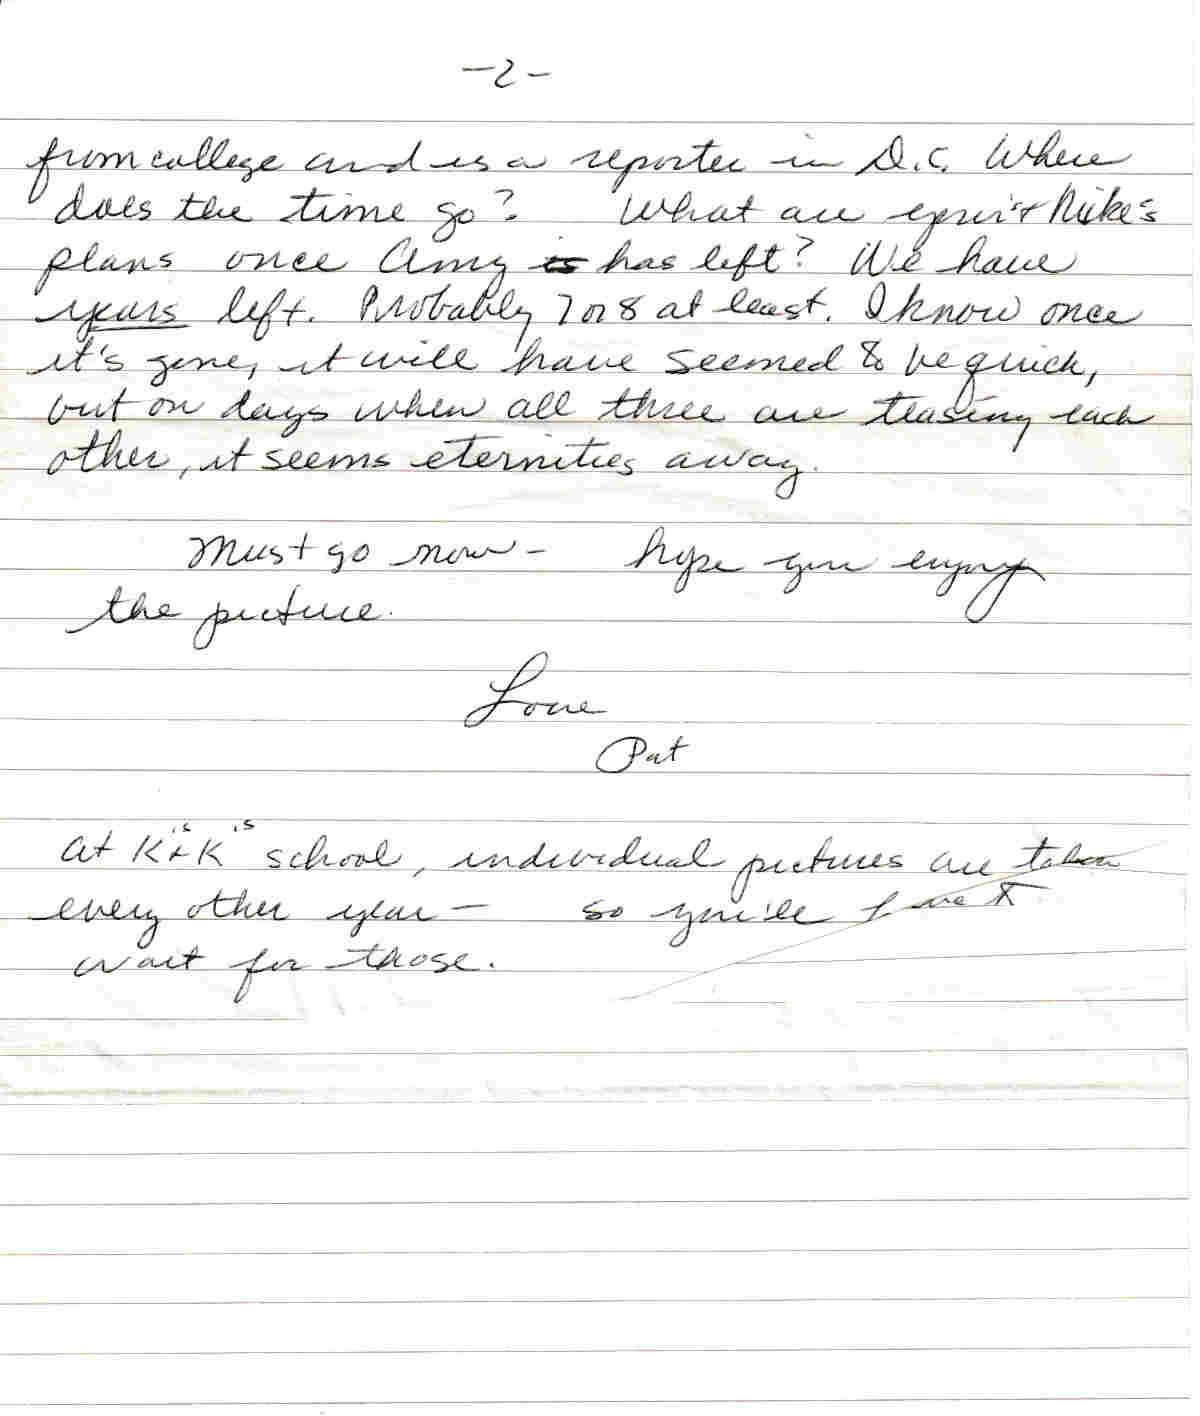 -2-
from college and is a reporter in D.C. Where
does the time go? What are your + Mike's
plans once Amy is has left? We have
years left. Probably 7 or 8 at least. I know once
it's gone, it will have seemed to be quick,
but on days when all three are teasing each
other, it seems eternities away.
Must go now - hope you enjoy
the picture.
Love
Pat
At K's + K's school, individual pictures are taken
every other year - so you'll have to
wait for those.